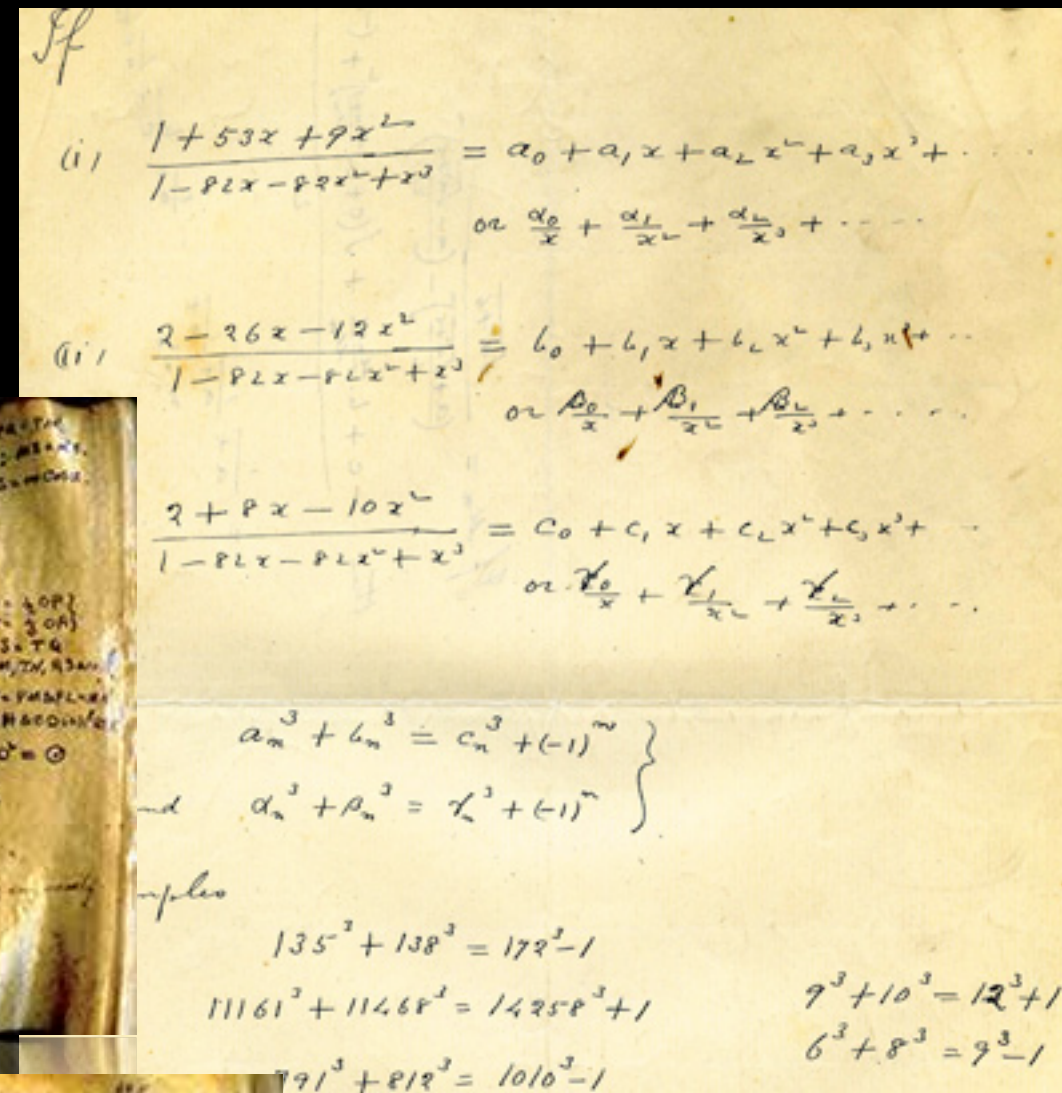 If
(i) (1 + 53x + 9x²)/(1 - 82x - 82x² + x³) = a₀ + a₁x + a₂x² + a₃x³ + ....
or α₀/x + α₁/x² + α₂/x³ + .....
(ii) (2 - 26x - 12x²)/(1 - 82x - 82x² + x³) = b₀ + b₁x + b₂x² + b₃x³ + ..
or β₀/x + β₁/x² + β₂/x³ + .....
(2 + 8x - 10x²)/(1 - 82x - 82x² + x³) = c₀ + c₁x + c₂x² + c₃x³ + ..
or γ₀/x + γ₁/x² + γ₂/x³ + ....
aₙ³ + bₙ³ = cₙ³ + (-1)ⁿ }
nd αₙ³ + βₙ³ = γₙ³ + (-1)ⁿ }
mples
135³ + 138³ = 172³ - 1
11161³ + 11468³ = 14258³ + 1
791³ + 812³ = 1010³ - 1
9³ + 10³ = 12³ + 1
6³ + 8³ = 9³ - 1